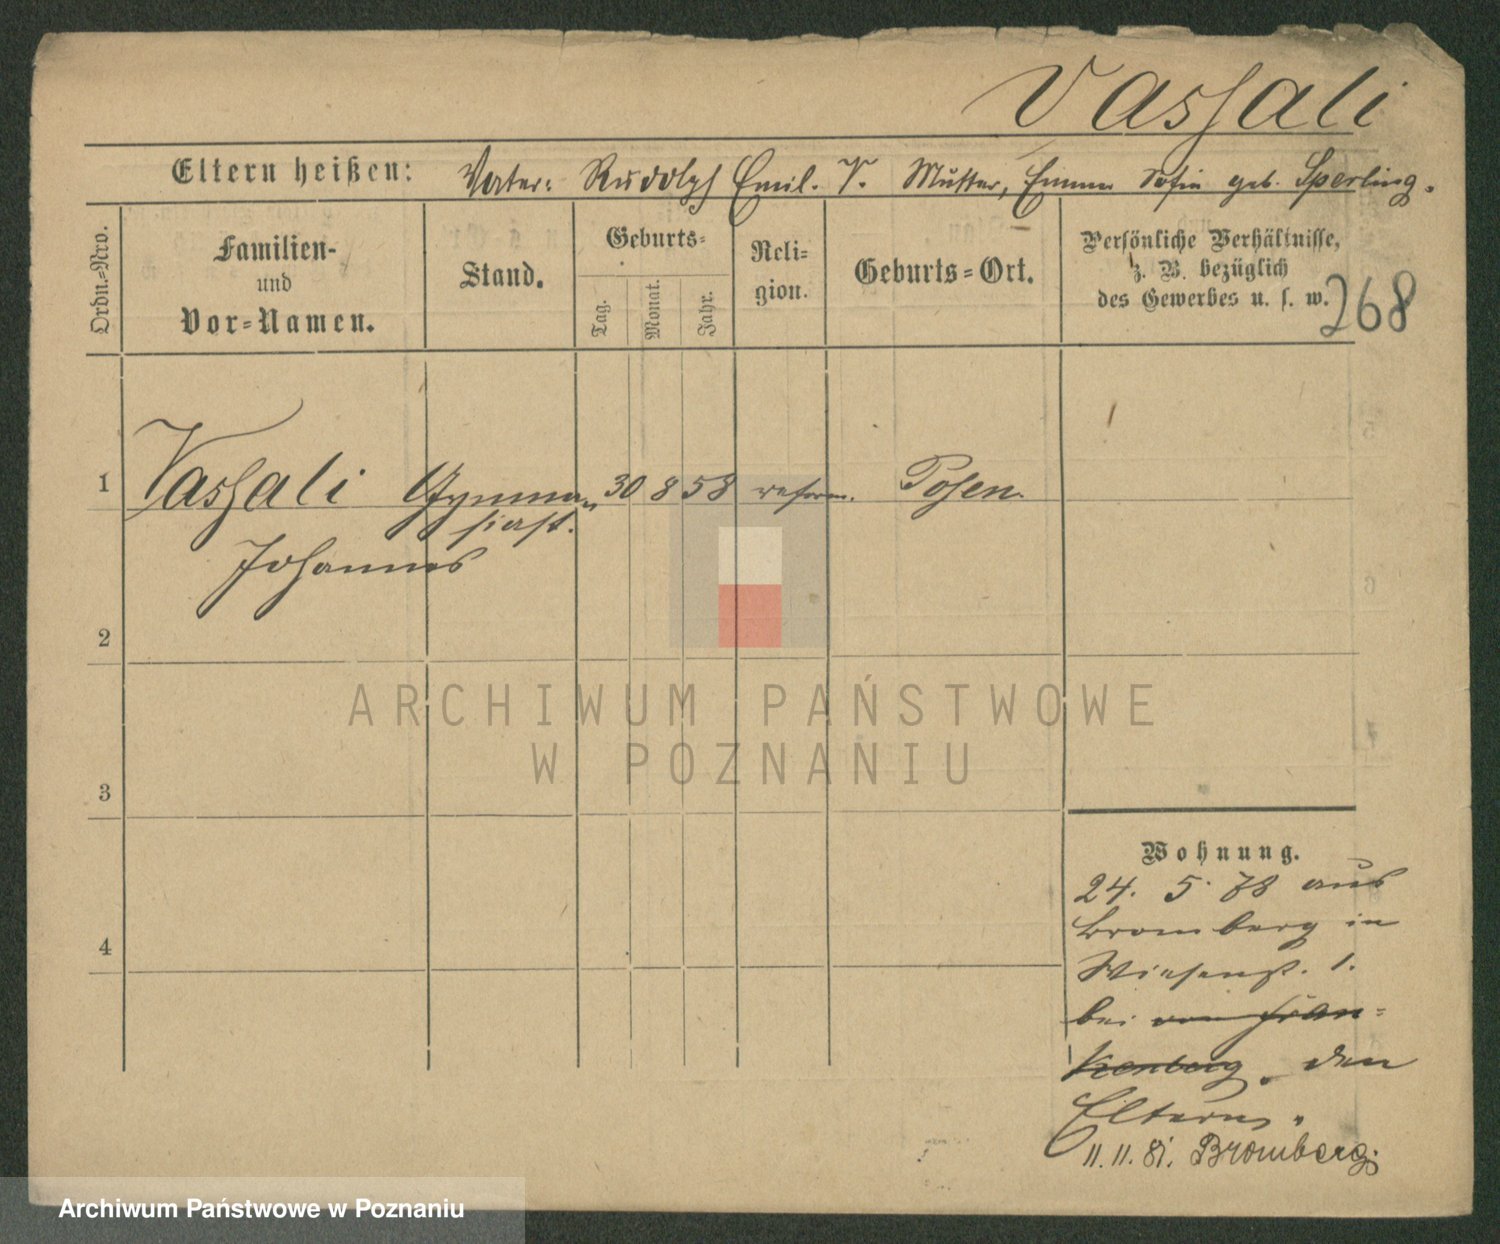 Vassali
Eltern heißen: Vater: Rudolph Emil. V. Mutter, Emma Sofie geb. Sperling.
Ordn.=Nro.
Familien-
und
Vor=Namen.
Stand.
Geburts=
Tag.
Monat.
Jahr.
Reli=
gion.
Geburts=Ort.
Persönliche Verhältnisse,
z. B. bezüglich
des Gewerbes u. s. w.
268
1 Vassali Gymna= 30 8 58 reform. Posen.
siast.
Johannes
2
3
4
Wohnung.
24. 5. 78 aus
Bromberg in
Wiesenstr. 1.
bei von Fran=
kenberg. den
Eltern.
11.11.81. Bromberg.
ARCHIWUM PAŃSTWOWE
W POZNANIU
Archiwum Państwowe w Poznaniu